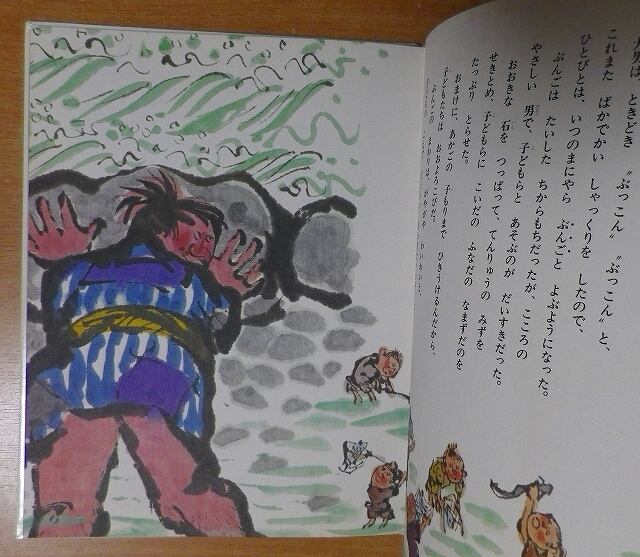 大男は ときどき 〝ぶっこん〟〝ぶっこん〟と、
これまた ばかでかい しゃっくりを したので、
ひとびとは、いつのまにやら ぶんごと よぶようになった。
ぶんごは たいした ちからもちだったが、こころの
やさしい 男で、子どもらと あそぶのが だいすきだった。
おおきな 石を つっぱって、てんりゅうの みずを
せきとめ、子どもらに こいだの ふなだの なまずだのを
たっぷり とらせた。
おまけに、あかごの 子もりまで ひきうけるんだから、
子どもたちは おおよろこびだ。
ぶんごの まわりは、